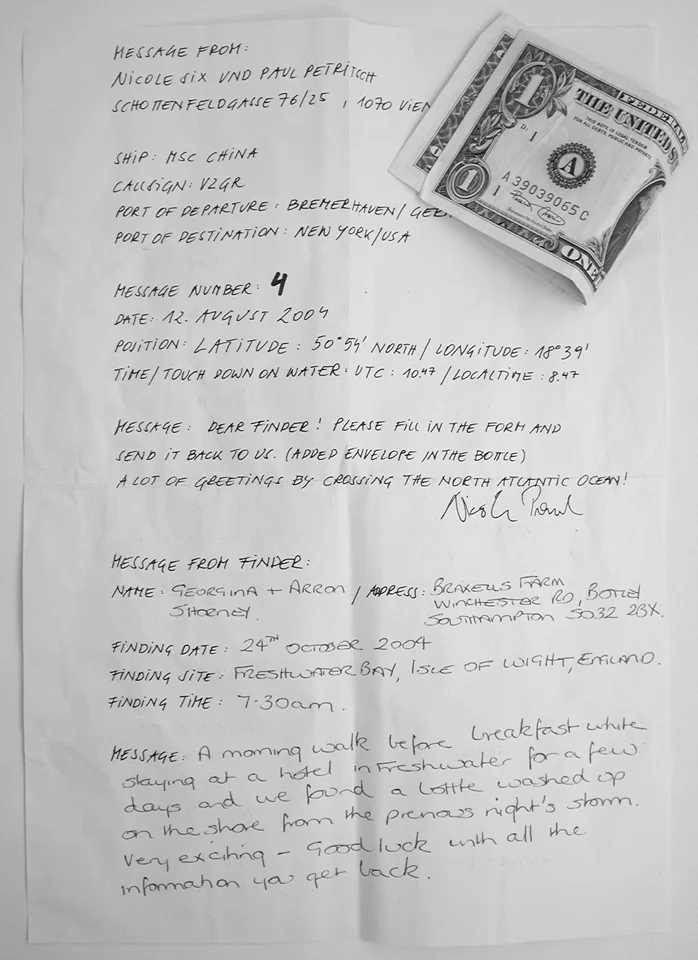 MESSAGE FROM:
NICOLE SIX UND PAUL PETRITSCH
SCHOTTENFELDGASSE 76/25 , 1070 VIEN
SHIP: MSC CHINA
CALLSIGN: V2GR
PORT OF DEPARTURE : BREMERHAVEN/ GER
PORT OF DESTINATION : NEW YORK/USA
MESSAGE NUMBER: 4
DATE: 12. AUGUST 2004
POSITION: LATITUDE : 50°54' NORTH / LONGITUDE : 18°39'
TIME/TOUCH DOWN ON WATER: UTC : 10.47 / LOCALTIME : 8.47
MESSAGE: DEAR FINDER! PLEASE FILL IN THE FORM AND
SEND IT BACK TO US. (ADDED ENVELOPE IN THE BOTLE)
A LOT OF GREETINGS BY CROSSING THE NORTH ATLANTIC OCEAN!
MESSAGE FROM FINDER:
NAME: GEORGINA + ARRON / ADDRESS: BRAXELLS FARM
SHORNEY. WINCHESTER RD, BOTLEY
SOUTHAMPTON SO32 2BX.
FINDING DATE: 24TH OCTOBER 2004
FINDING SITE: FRESHWATER BAY, ISLE OF WIGHT, ENGLAND.
FINDING TIME: 7.30am.
MESSAGE: A morning walk before breakfast while
staying at a hotel in Freshwater for a few
days and we found a bottle washed up
on the shore from the previous night's storm.
Very exciting – Good luck with all the
information you get back.
FEDERAL
THE UNITED S
THIS NOTE IS LEGAL TENDER
FOR ALL DEBTS, PUBLIC AND PRIVATE
1
D 1
A
A 39039065 C
1
1
ONE